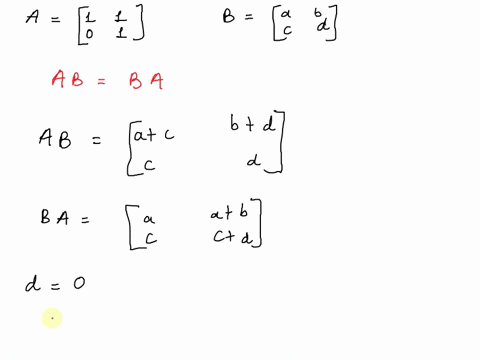 A = [1 1 B = [a b
0 1] c d]
AB = BA
AB = [a+c b+d
c d]
BA = [a a+b
c c+d]
d = 0